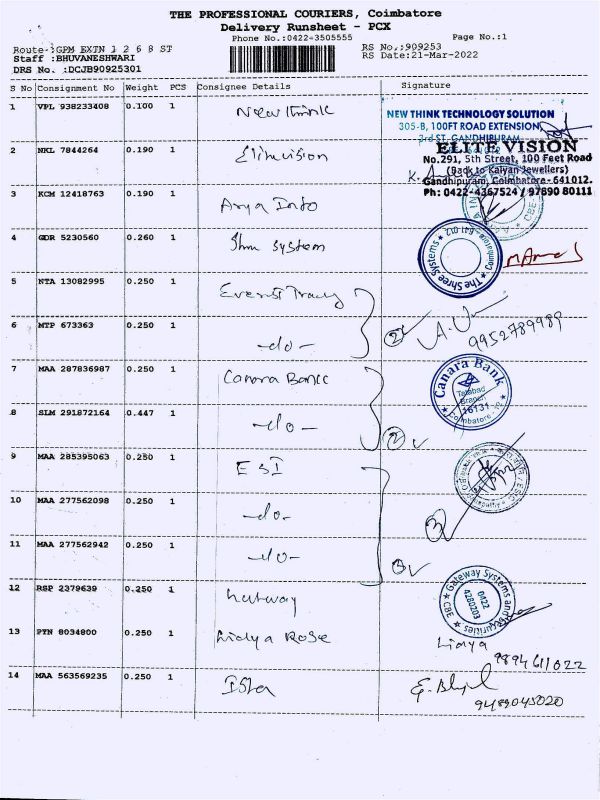 THE PROFESSIONAL COURIERS, Coimbatore
Delivery Runsheet - PCX
Phone No.:0422-3505555 Page No.:1
Route-:GPM EXTN 1 2 6 8 ST RS No,:909253
Staff :BHUVANESHWARI RS Date:21-Mar-2022
DRS No. :DCJB90925301
S No Consignment No Weight PCS Consignee Details Signature
1 VPL 938233408 0.100 1 New Think
NEW THINK TECHNOLOGY SOLUTION
305-B, 100FT ROAD EXTENSION,
3rd ST, GANDHIPURAM,
2 NKL 7844264 0.190 1 Elite vision
ELITE VISION
No.291, 5th Street, 100 Feet Road
(Back to Kalyan Jewellers)
Gandhipuram, Coimbatore - 641012.
Ph: 0422-4367524 / 97890 80111
3 KCM 12418763 0.190 1 Arya Info
4 GDR 5230560 0.260 1 Shree System
The Shree Systems Coimbatore-641 012
5 NTA 13082995 0.250 1 Everest Tracy
6 MTP 673363 0.250 1 -do- 2
9952789989
7 MAA 287836987 0.250 1 Canara Bank
Canara Bank
Tatabad
Branch
16131
Coimbatore - 12
8 SLM 291872164 0.447 1 -do- 2
9 MAA 285395063 0.250 1 ESI
10 MAA 277562098 0.250 1 -do- 3
11 MAA 277562942 0.250 1 -do- 3
12 RSP 2379639 0.250 1 Gateway
Gateway Systems and Securities
CBE
0422
4280203
13 PTN 8034800 0.250 1 Lidya Rose Lidya
9894611022
14 MAA 563569235 0.250 1
9489045020